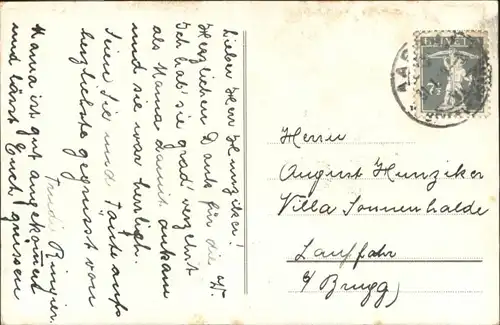 Lieber Herr Hunziker!
Herzlichen Dank für die W.
Ich hab' sie grad' verzehrt
als Mama damit ankam
und sie war herrlich.
Seien Sie und Tante aufs
herzlichste gegrüsst von
Trudi Ringier.
Mama ist gut angekommen
und lässt Euch grüssen
HELVETIA
7½
AAR
Herrn
August Hunziker
Villa Sonnenhalde
Lauffohr
b/ Brugg